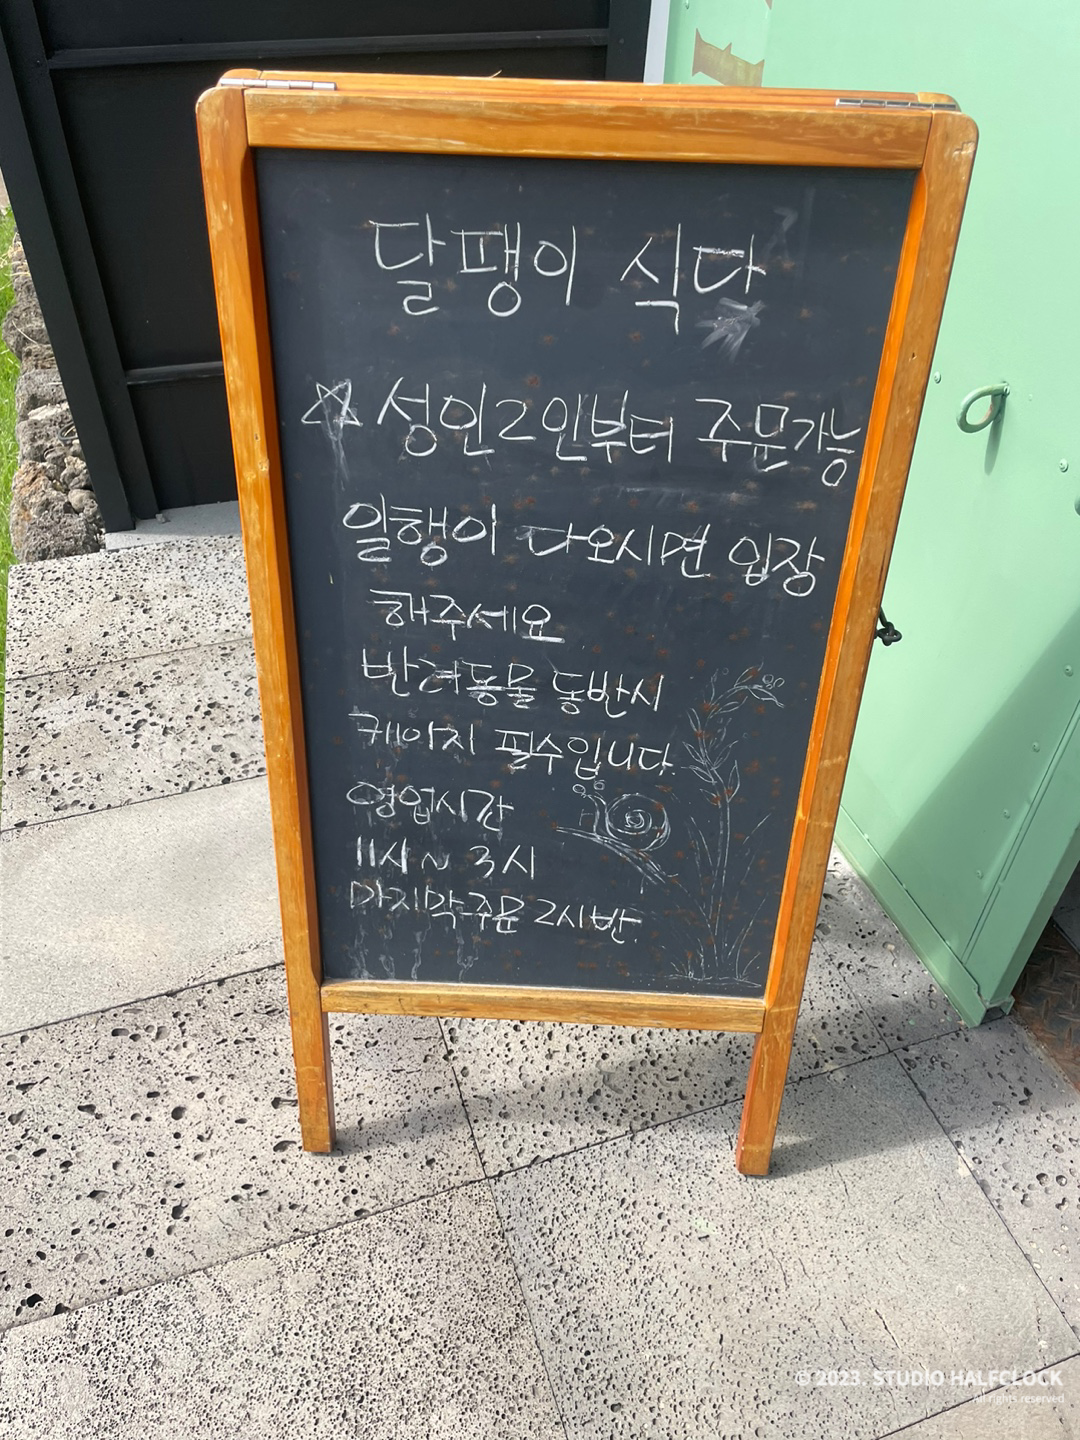 달팽이 식다
☆ 성인2인부터 주문가능
일행이 다오시면 입장
해주세요
반려동물 동반시
케이지 필수입니다.
영업시간
11시 ~ 3시
마지막주문 2시반.
© 2023. STUDIO HALFCLOCK
All rights reserved